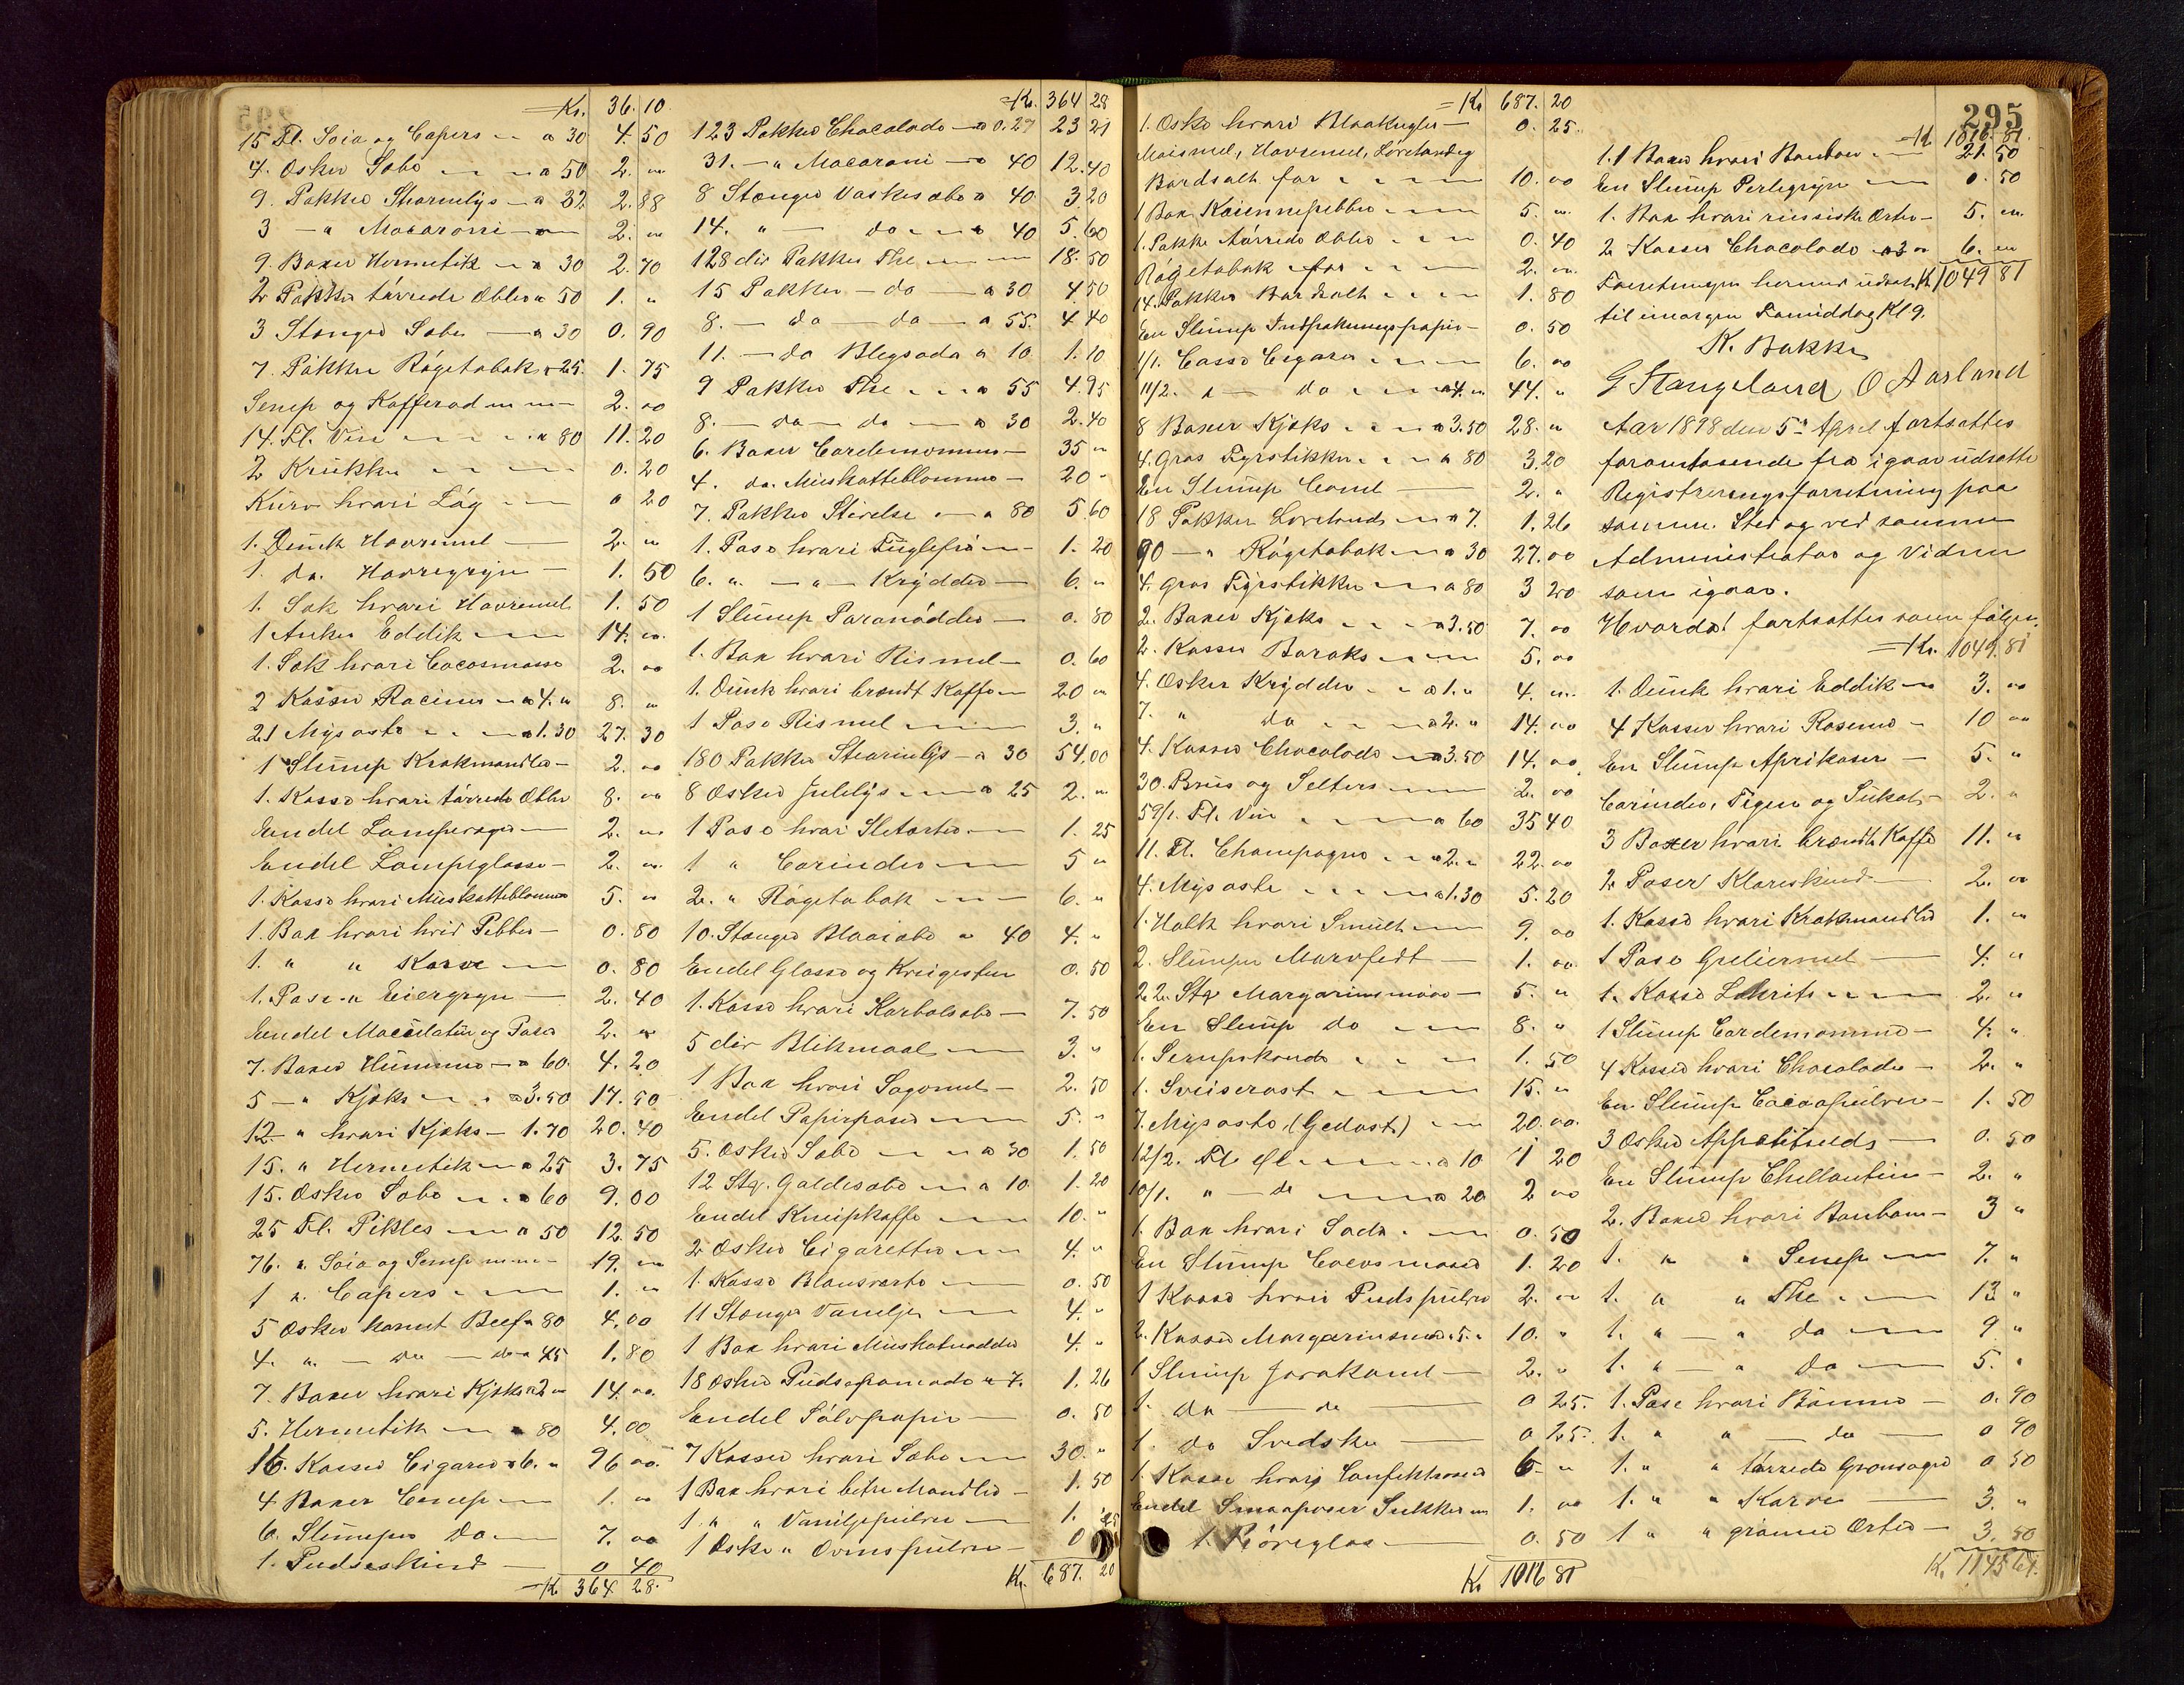 =Kr. 36. 10
15 Fl. Soia og Capers — a 30 4. 50
4. Esker Sæbe — a 50 2. "
9. Pakker Stearinlys — a 32 2. 88
3 — " Macaroni — 2. "
9. Boxer Hermetik — a 30 2. 70
2 Pakker tørrede Æbler a 50 1. "
3 Stænger Sæbe — a 30 0. 90
7. Pakker Røgetobak a 25. 1. 75
Senep og Kafferod — 2. 00
14. Fl. Vin — a 80 11. 20
2 Krukker — 0. 20
Kurv hvari Løg — 0 20
1. Dunk Havremel — 2. "
1. da. Havregryn — 1. 50
1. Sæk hvari Havremel 1. 50
1 Anker Eddik — 14. 00
1. Sæk hvari Cocosmasse 2. 00
2 Kasser Raciner — a 4. " 8. "
21 Mysoste — a 1.30 27. 30
1 Slump Krakmandler — 2. 00
1. Kasse hvari tørrede Æbler 8. 00
Endel Lampevæger — 2. "
Endel Lampeglasse — 2. "
1. Kasse hvari Muskatteblomme 5. "
1. Box hvari hvid Pebber — 0. 80
1. " " Karve — 0. 80
1. Pose " Eiergryn — 2. 40
Endel Maculatur og Poser 2. "
7. Boxer Hummer — a 60. 4. 20
5 — " Kjæks — a 3.50 17. 50
12 — " hvari Kjæks — 1.70 20. 40
15. " Hermetik — a 25 3. 75
15. Esker Sæbe — a 60 9. 00
25 Fl. Pikles — a 50 12. 50
76. " Soia og Senep — 19. "
1 " Capers — 1. "
5 Esker kornet Beef a 80 4. 00
4. " — da — da a 45 1. 80
7. Boxer hvari Kjæks a 2 " 14. 00
5. Hermetik — a 80 4. 00
16. Kasser Cigarer a 6. " 96 00
4 Boxer Senep — 1. "
6. Slumper Do — 7. 00
1. Pudseskind — 0 40
=Kr. 364. 28.
=Kr. 364 28
123 Pakker Chocolade — a 0.27 23 21
31. — " Macaroni — a 40 12. 40
8 Stænger Vaskesæbe a 40. 3. 20
14. " — da — a 40 5. 60
128 div Pakker The — 18. 50
15 Pakker — da — a 30 4. 50
8. — da — da — a 55. 4 40
11. — da Blegsoda a 10 1. 10
9 Pakker The — a 55 4. 95
8. — da — da — a 30 2. 40
6. Boxer Cardemomme — 35 "
4. da. Muskatteblomme — 20 "
7. Pakker Stivelse — a 80 5. 60
1. Pose hvari Fuglefrø — 1. 20
6. " — " — Krydder — 6. "
1 Slump Paranødder — 0. 80
1. Box hvari Rismel — 0. 60
1. Dunk hvari brændt Kaffe — 20 "
1 Pose Rismel — 3. "
180 Pakker Stearinlys — a 30 54. 00
8 Esker Julelys — a 25 2. "
1 Pose hvari Sleterter — 1. 25
1 " Corinder — 5 "
2. " Røgetobak — 6. "
10. Stænger Blaasæbe a 40 4. "
Endel Glasse og Krigesten 0. 50
1. Kasse hvari Karbolsæbe — 7. 50
5 div Blikmaal — 3. "
1 Box hvari Sagomel — 2. 50
Endel Papirposer — 5. "
5. Esker Sæbe — a 30 1. 50
12 Stg. Galdesæbe — a 10 1. 20
Endel Kneipkaffe — 10. "
2 Esker Cigaretter — 4. "
1. Kasse Blansverte — 0. 50
11 Stænger Vanilje — 4. "
1 Box hvari Muskatnødder 4. "
18 Esker Pudsepomade a 7. 1. 26
Endel Sølvpapir — 0. 50
7 Kasser hvari Sæbe — 30. "
1 Box hvari bitre Mandler — 1. 50
1. " " Vaniljepulver — 1. 25
1 Eske " Ovnspulver — 0
Kr. 687. 20
295
=Kr 687. 20
1. Eske hvari Blaakugler — 0. 25.
Maismel, Havremel, Løvetandog
Bordsalt for — 10. 00
1 Box Kaiennepebber — 5. "
1. Pakke tørrede Æbler — 0. 40
Røgetobak for — 2. "
14. Pakker Bordsalt — 1. 80
En Slump Indpakningspapir — 0. 50
1/1. Casse Cigarer — 6. 00
11/2. " — da — a 4. " 44. "
8 Boxer Kjæks — a 3.50 28. "
4. Gros Fyrstikker — a 80 3. 20
En Slump Canel — 2. "
18 Pakker Løvetand — a 7. 1. 26
90 — " Røgetobak — a 30 27. 00
4. Gros Fyrstikker — a 80 3 20
2. Boxer Kjæks — a 3.50 7. 00
2. Kasser Boraks — 5. 00
4. Esker Krydder — a 1. " 4. "
7. " da — a 2. " 14. 00
4. Kasser Chocolade — a 3.50 14. 00
30. Brus og Selters — 2. 00
59/1. Fl. Vin — a 60 35 40
11. Fl. Champagne — a 2. " 22. 00
4. Mysoste — a 1.30 5. 20
1. Holk hvari Smult — 9. 00
2. Slumper Marvfedt — 1. 00
22. Stg Margarinsmør — 5. "
En Slump do — 8. "
1. Serupskande — 1. 50
1. Sveiserost — 15. "
7. Mysoste (Gedost.) — 20. 00
12/2. Fl Øl — a 10 1 20
10/1. " — da — a 20 2 00
1. Box hvari Soda — 0. 50
En Slump Cocosmasse 1. 20
1 Kasse hvari Pudspulver 2. 00
2. Kasser Margarinsmør a 5. " 10. "
1 Slump Javakanel — 2. "
1. da — da — 0 25.
1. do Svedsker — 0 25.
1. Kasse hvari Confektrosiner 6 "
Endel Smaaposer Sukker 1. 00
1. Røreglas — 0. 50
Kr 1016 81
=Kr 1016. 81
1.1 Boxer hvari Bonbon — 21. 50
En Slump Perlegryn — 0. 50
1. Box hvari russiske Erter — 5. "
2 Kasser Chocolade a 3 " 6. "
Forretningen hermed udsat Kr 1049 81
til imorgen Formiddag Kl 9.
K. Bakke
G Stangeland O Aarland
Aar 1898 den 5te April fortsattes
foranstaaende fra igaar udsatte
Registreringsforretning paa
samme Sted og ved samme
Administrator og Vidner
som igaar.
Hvorda! fortsattes som følger.
=Kr. 1049. 81
1. Dunk hvari Eddik — 3. 00
4 Kasser hvari Rosiner — 10 00
En Slump Aprikoser — 5. "
Corinder, Figen og Sukat — 2. "
3 Boxer hvari brændt Kaffe 11. "
2 Poser Klareskind — 2. 00
1. Kasse hvari Krakmandler 1. "
1 Pose Guliermel — 4. "
1. Kasse Lakrits — 2. "
1 Slump Cardemomme — 4. "
4 Kasser hvari Chocolade — 2. "
En Slump Cacaopulver — 1. 50
3 Esker Appetitseds — 0. 50
En Slump Chellantin — 2. "
2. Boxer hvari Bonbon — 3 "
1. " " Senep — 7. "
1. " " The — 13 "
1. " — " da — 9 "
1. " — " Da — 5. "
1. Pose hvari Bønner — 0. 90
1. " " — da — 0 90
1. " " tørrede Grønsager 0 50
1. " " Karve — 3. "
1 " " grønne Erter — 3. 50
Kr. 1145 61.